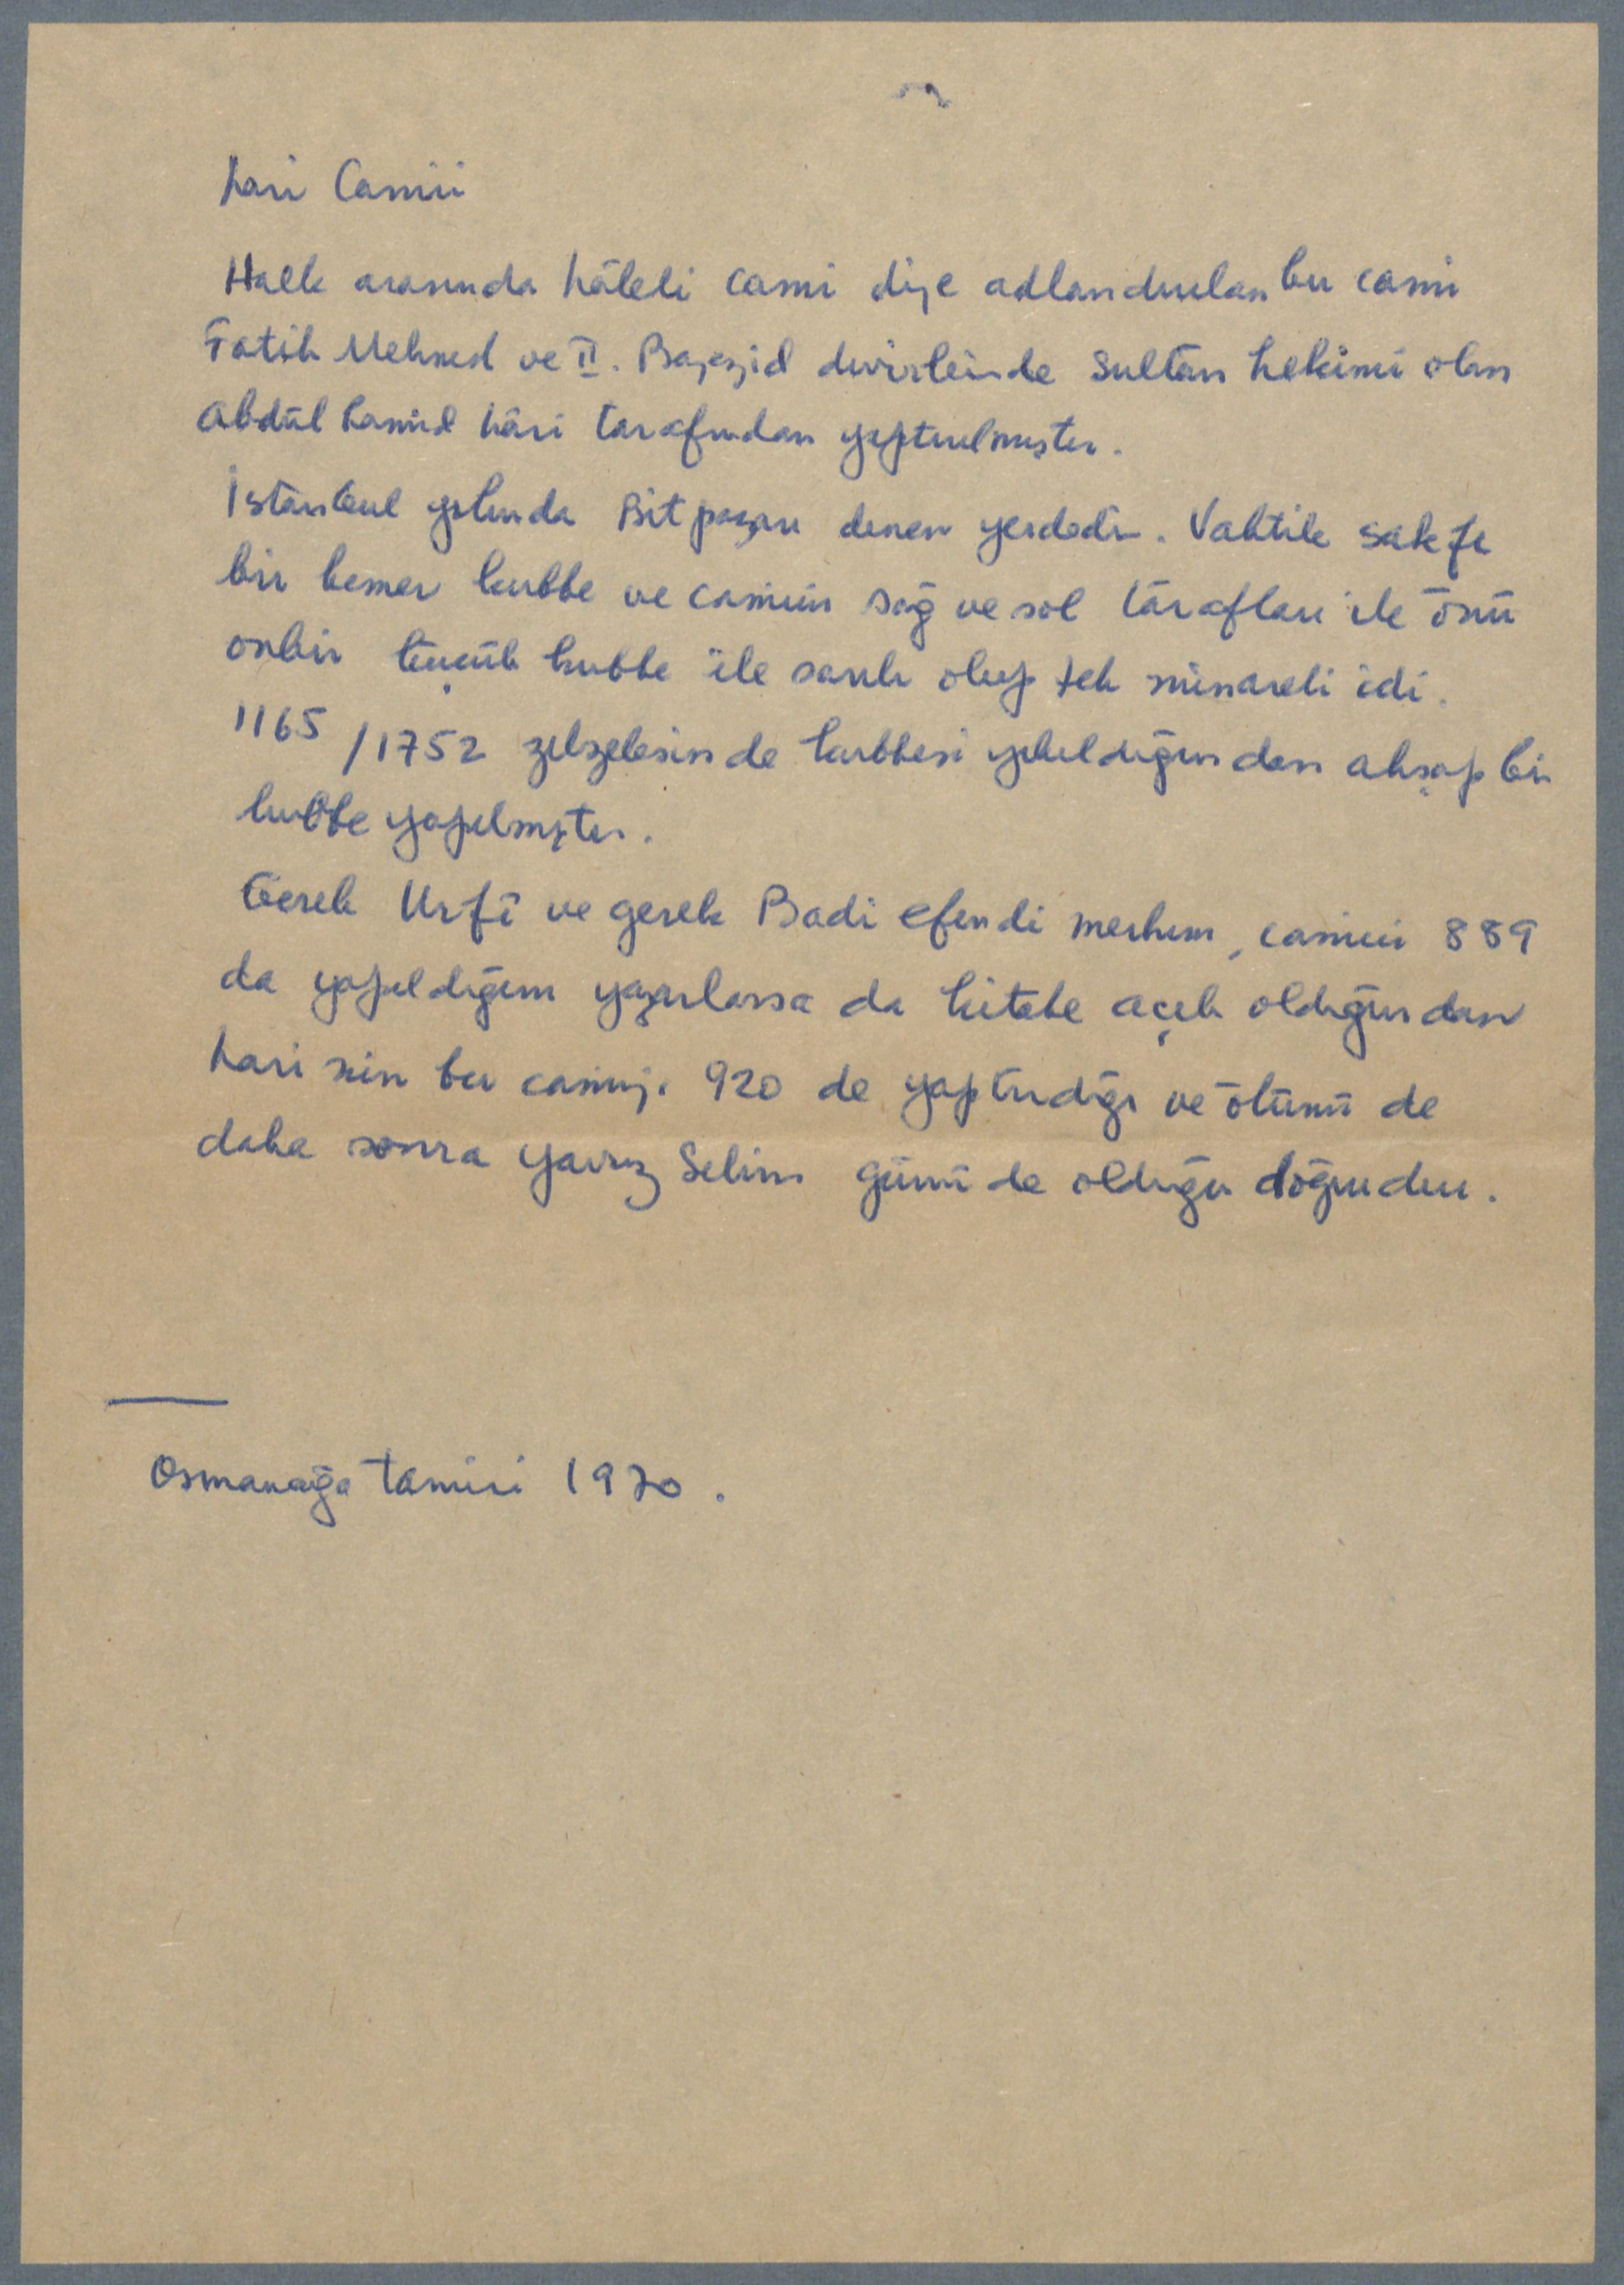 Lari Camii
Halk arasında Lâleli cami diye adlandırılan bu cami
Fatih Mehmed ve II. Bayezid devirlerinde Sultan hekimi olan
Abdül hamid Lâri tarafından yaptırılmıştır.
İstanbul yolunda Bitpazarı denen yerdedir. Vaktile sakfı
bir kemer kubbe ve camiin sağ ve sol tarafları ile önü
onbir küçük kubbe ile sarılı olup tek minareli idi.
1165 / 1752 zelzelesinde kubbesi yıkıldığından ahşap bir
kubbe yapılmıştır.
Gerek Urfî ve gerek Badi efendi merhum, camiin 889
da yapıldığını yazarlarsa da kitabe açık olduğundan
Lari nin bu camiyi 920 de yaptırdığı ve ölümü de
daha sonra Yavuz Selim günü de olduğu doğrudur.
Osmanağa tamiri 1970.